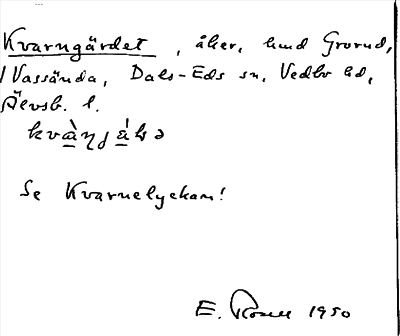 Kvarngärdet, åker, hmd Grorud,
Vassända, Dals-Eds sn, Vedbo hd,
Älvsb. l.
Se Kvarnelyckan!
E. Rosell 1950